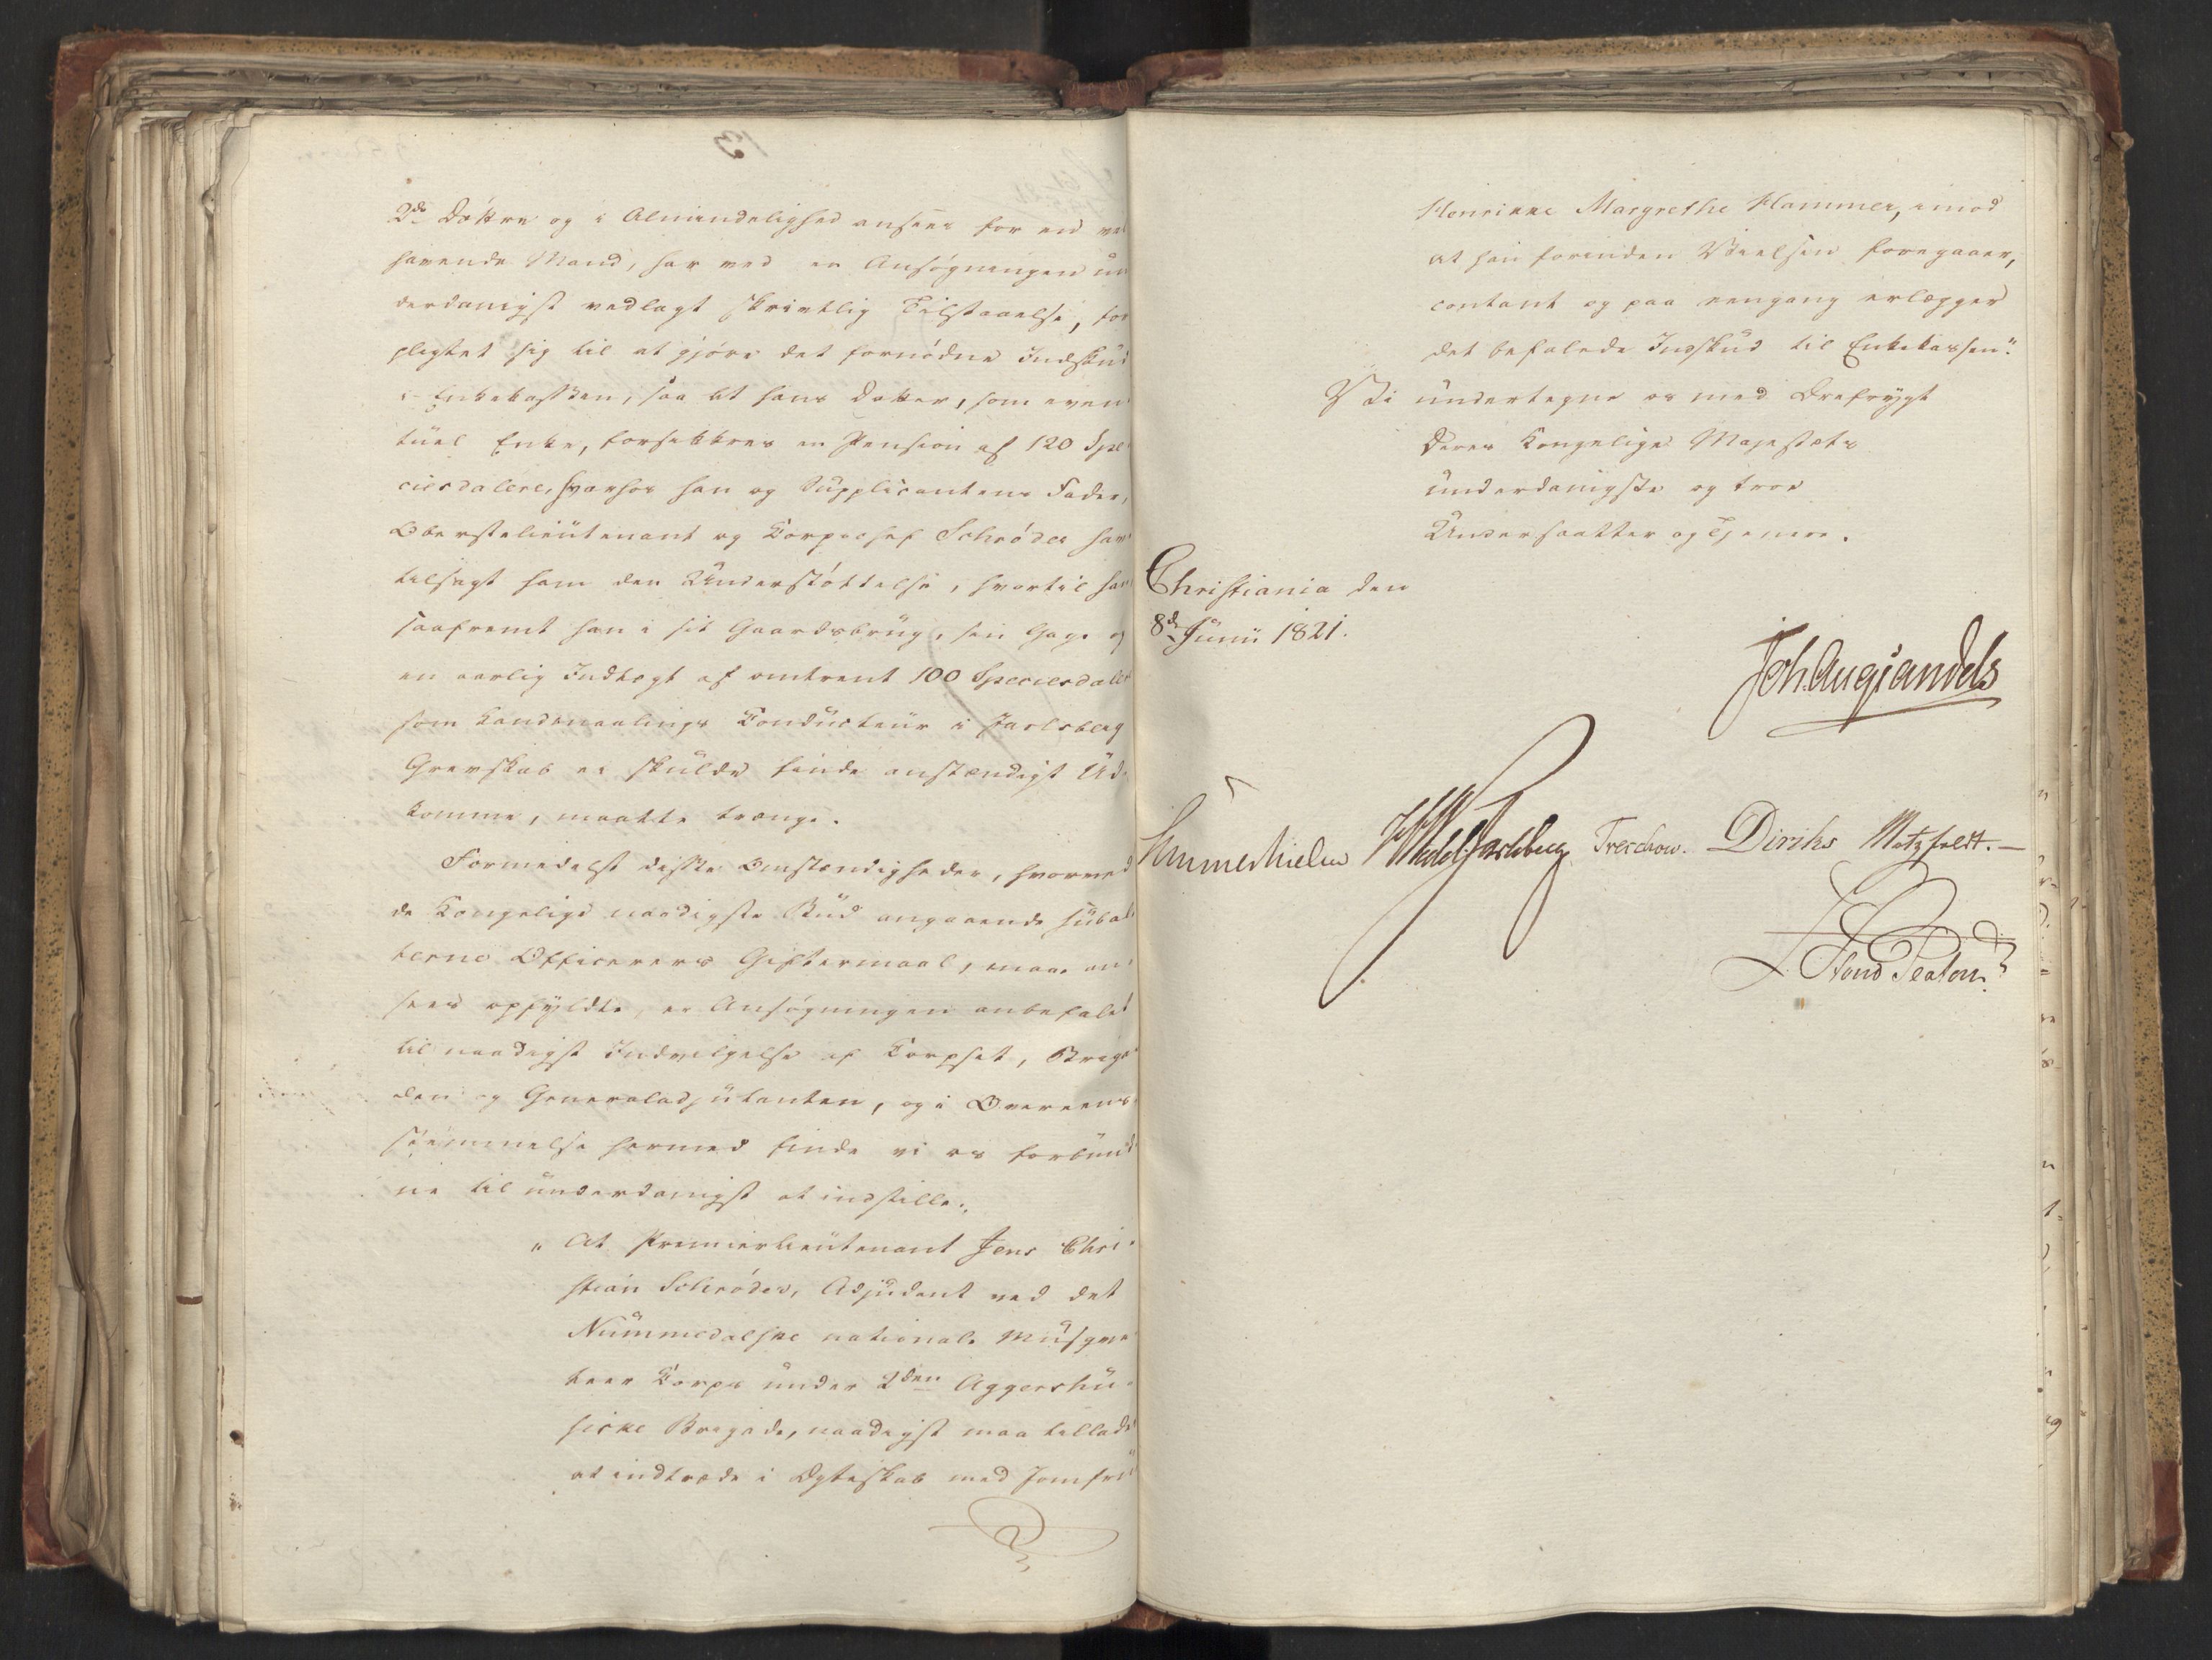 2de Døttre og i Almindelighed ansees for en vel
havende Mand, har ved en Ansøgningen un
derdanigst vedlagt skrivtlig Tilstaaelse, for
pligtet sig til at gjøre det fornødne Indskud
i Enkekassen, saa at hans Datter, som even
tuel Enke, forsikkres en Pension af 120 Spe
ciesdalere, hvorhos han og Supplicantens Fader,
Oberstelieutenant og Corpschef Schrøder har
tilsagt ham den Understøttelse, hvortil han
saafremt han i sit Gaardsbrug, sin Gage og
en aarlig Indtægt af omtrent 100 Speciesdaler
som Landmaalings Conducteur i Jarlsberg
Grevskab ei skulde finde anstændigt Ud-
komme, maatte trænge.
Formedelst disse Omstændigheder, hvorved
de Kongelige naadigste Bud angaaende subal
terne Officerers Giftermaal, maae an
sees opfyldte, er Ansøgningen anbefalet
til naadigst Indvilgelse af Corpset, Briga
den og Generaladjutanten, og i Overeens
stemmelse hermed finde vi os forbund
ne til underdanigst at indstille:
"At Premierlieutenant Jens Chri-
stian Schrøder, Adjudant ved det
Nummedalske nationale Musque
teer Corps under 2den Aggershu-
siske Brigade, naadigst maa tillades
at indtræde i Ægteskab med Jomfru
Henrikke Margrethe Hammer, imod
at han forinden Vielsen foregaaer,
contant og paa eengang erlægger
det befalede Indskud til Enkekassen."
Vi undertegne os med Ærefrygt
Deres Kongelige Majestæts
underdanigste og troe
Undersaatter og Tjenere.
Christiania den
8de Junii 1821.
Joh. Aug Sandels
Sommerhielm HWedel Jarlsberg Treschow. Diriks Motzfeldt.